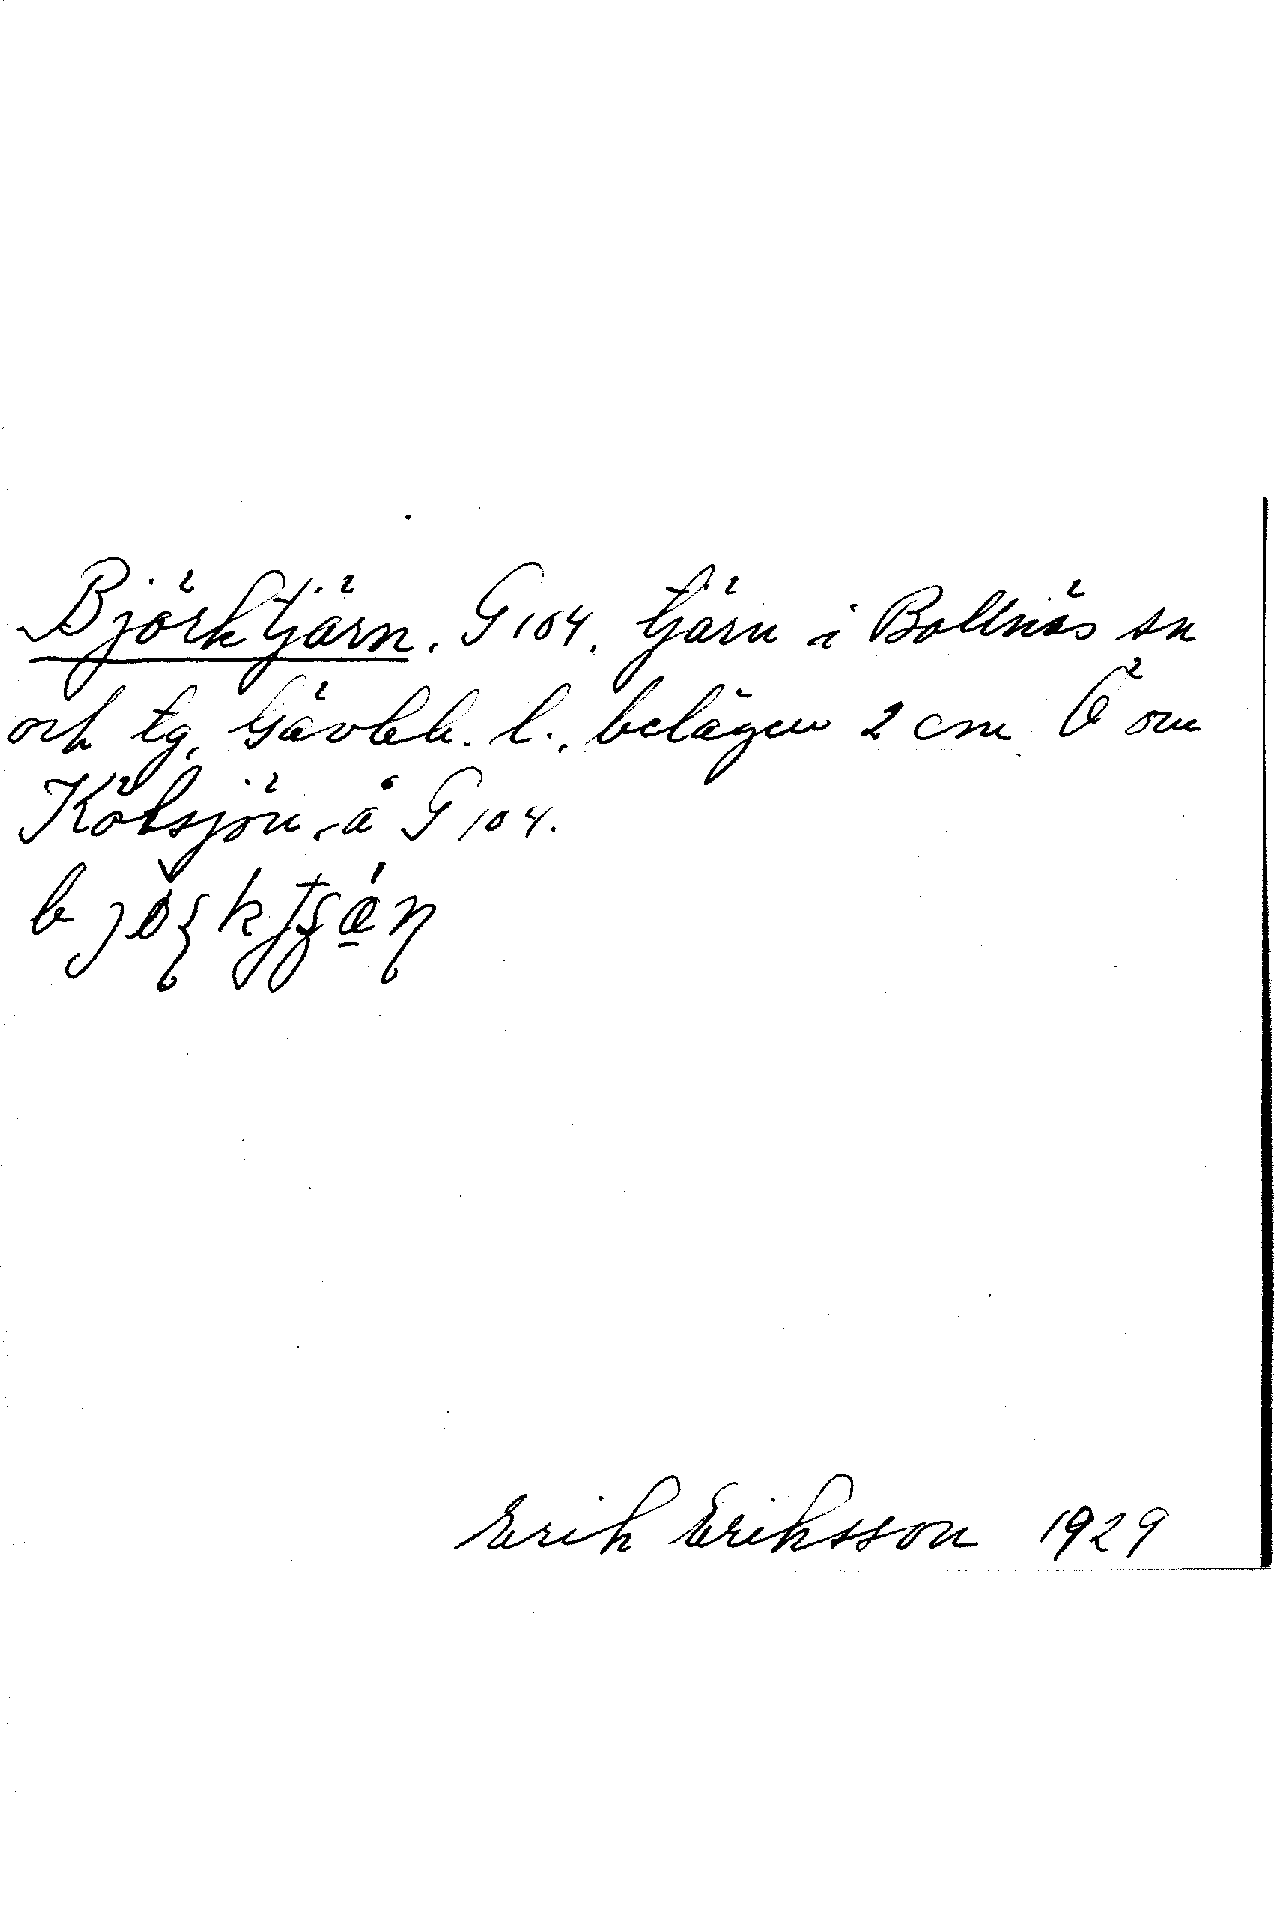 Björktjärn. G 104. tjärn i Bollnäs sn
och tg, Gävleb. l., belägen 2 cm Ö om
Kölsjön å G 104.
Erik Eriksson 1929